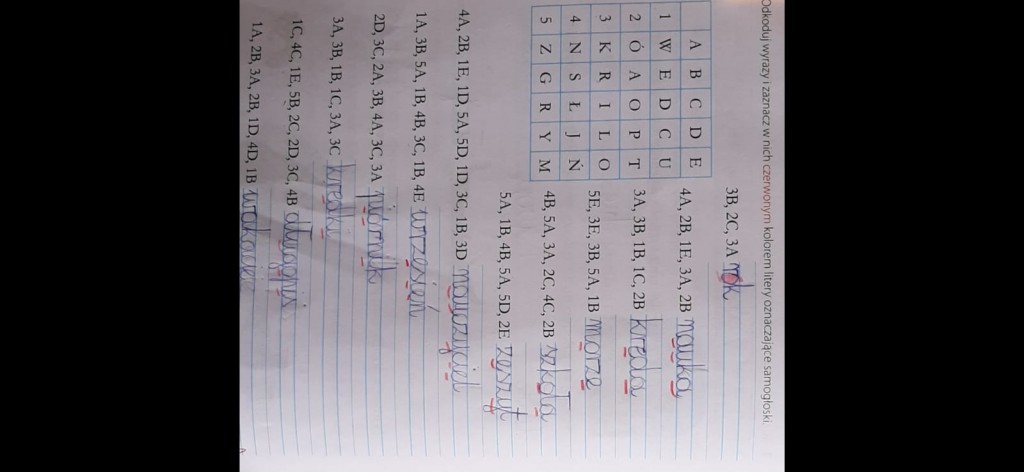 Odkoduj wyrazy i zaznacz w nich czerwonym kolorem litery oznaczające samogłoski.
A B C D E
1 W E D C U
2 Ó A O P T
3 K R I L O
4 N S Ł J Ń
5 Z G R Y M
3B, 2C, 3A rok
4A, 2B, 1E, 3A, 2B nauka
3A, 3B, 1B, 1C, 2B kreda
5E, 3E, 3B, 5A, 1B morze
4B, 5A, 3A, 2C, 4C, 2B szkoła
5A, 1B, 4B, 5A, 5D, 2E zeszyt
4A, 2B, 1E, 1D, 5A, 5D, 1D, 3C, 1B, 3D nauczyciel
1A, 3B, 5A, 1B, 4B, 3C, 1B, 4E wrzesień
2D, 3C, 2A, 3B, 4A, 3C, 3A piórnik
3A, 3B, 1B, 1C, 3A, 3C kredki
1C, 4C, 1E, 5B, 2C, 2D, 3C, 4B długopis
1A, 2B, 3A, 2B, 1D, 4D, 1B wakacje